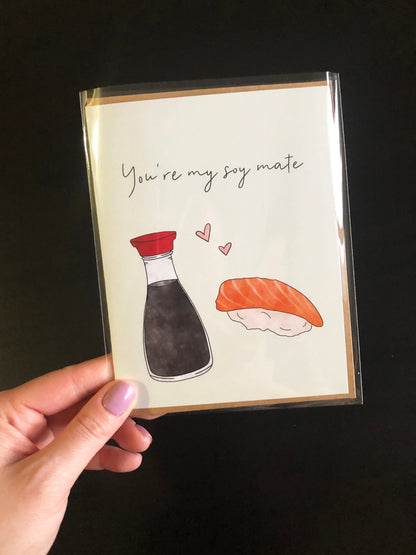 You're my soy mate